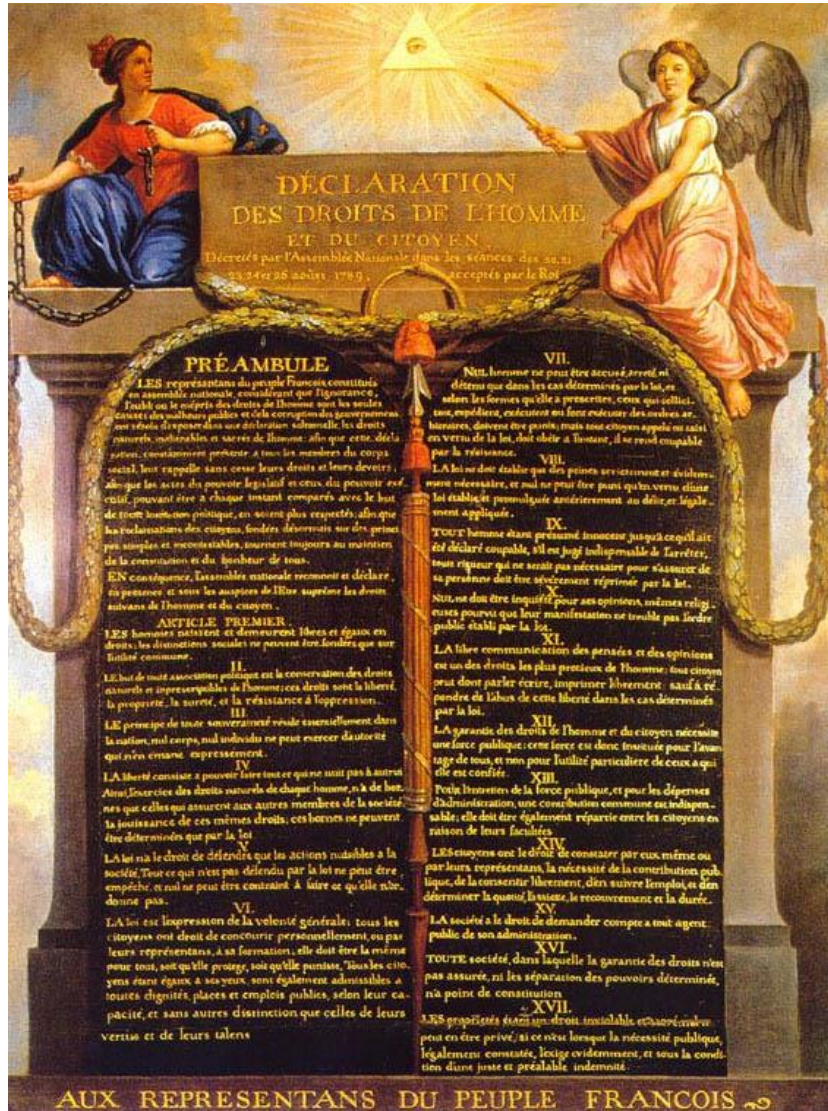 DÉCLARATION
DES DROITS DE L'HOMME
ET DU CITOYEN,
Décretés par l'Assemblée Nationale dans les séances des 20, 21
23, 24 et 26 août 1789, acceptés par le Roi
PRÉAMBULE
LES représentans du peuple François, constitués
en assemblée nationale, considérant que l'ignorance,
l'oubli ou le mépris des droits de l'homme sont les seules
causes des malheurs publics et de la corruption des gouvernemens
ont résolu d'exposer dans une déclaration solemnelle, les droits
naturels, inaliénables et sacrés de l'homme; afin que cette décla
ration, constamment présente à tous les membres du corps
social, leur rappelle sans cesse leurs droits et leurs devoirs;
afin que les actes du pouvoir législatif et ceux du pouvoir exé
cutif, pouvant être à chaque instant comparés avec le but
de toute institution politique, en soient plus respectés; afin que
les réclamations des citoyens, fondées désormais sur des princi
pes simples et incontestables, tournent toujours au maintien
de la constitution et du bonheur de tous.
EN conséquence, l'assemblée nationale reconnoit et déclare,
en présence et sous les auspices de l'Etre suprême les droits
suivans de l'homme et du citoyen.
ARTICLE PREMIER.
LES hommes naissent et demeurent libres et égaux en
droits; les distinctions sociales ne peuvent être fondées que sur
l'utilité commune.
II.
LE but de toute association politique est la conservation des droits
naturels et imprescriptibles de l'homme; ces droits sont la liberté,
la propriété, la sureté, et la résistance à l'oppression.
III.
LE principe de toute souveraineté réside essentiellement dans
la nation, nul corps, nul individu ne peut exercer d'autorité
qui n'en émane expressément.
IV.
LA liberté consiste à pouvoir faire tout ce qui ne nuit pas à autrui
Ainsi, l'exercice des droits naturels de chaque homme, n'a de bor-
nes que celles qui assurent aux autres membres de la société
la jouissance de ces mêmes droits; ces bornes ne peuvent
être déterminées que par la loi
V.
LA loi n'a le droit de défendre que les actions nuisibles à la
société. Tout ce qui n'est pas défendu par la loi ne peut être
empêché, et nul ne peut être contraint à faire ce qu'elle n'or-
donne pas.
VI.
LA loi est l'expression de la volonté générale; tous les
citoyens ont droit de concourir personnellement, ou par
leurs représentans, à sa formation; elle doit être la même
pour tous, soit qu'elle protege, soit qu'elle punisse. Tous les cito-
yens étant égaux à ses yeux, sont également admissibles à
toutes dignités, places et emplois publics, selon leur ca-
pacité, et sans autres distinction que celles de leurs
vertus et de leurs talens
VII.
NUL homme ne peut être accusé, arreté, ni
détenu que dans les cas déterminés par la loi, et
selon les formes qu'elle a prescrites, ceux qui sollici-
tent, expédient, exécutent ou font exécuter des ordres ar-
bitraires, doivent être punis; mais tout citoyen appelé ou saisi
en vertu de la loi, doit obéir à l'instant, il se rend coupable
par la résistance.
VIII.
LA loi ne doit établir que des peines strictement et évidem-
ment nécessaire, et nul ne peut être puni qu'en vertu d'une
loi établie, et promulguée antérierement au délit, et légale-
ment appliquée.
IX.
TOUT homme étant présumé innocent jusqu'à ce qu'il ait
été déclaré coupable, s'il est jugé indispensable de l'arrêter,
toute rigueur qui ne serait pas nécessaire pour s'assurer de
sa personne doit être sévèrement réprimée par la loi.
X.
NUL ne doit être inquiété pour ses opinions, mêmes religi-
euses pourvu que leur manifestation ne trouble pas l'ordre
public établi par la loi.
XI.
LA libre communication des pensées et des opinions
est un des droits les plus precieux de l'homme; tout citoyen
peut dont parler écrire, imprimer librement sauf à ré-
pondre de l'abus de cette liberté dans les cas déterminés
par la loi.
XII.
LA garantie des droits de l'homme et du citoyen nécessite
une force publique; cette force est donc instituée pour l'avan-
tage de tous, et non pour l'utilité particuliere de ceux a qui
elle est confiée.
XIII.
POUR l'entretien de la force publique, et pour les dépenses
d'administration, une contribution commune est indispen-
sable; elle doit être également répartie entre les citoyens en
raison de leurs facultées
XIV.
LES citoyens ont le droit de constater par eux même ou
par leurs représentans, la nécessité de la contribution pub-
lique, de la consentir librement, d'en suivre l'emploi, et d'en
déterminer la quotité, l'assiete, le recouvrement et la durée.
XV.
LA société a le droit de demander compte a tout agent
public de son administration.
XVI.
TOUTE société, dans laquelle la garantie des droits n'est
pas assurée, ni les séparation des pouvoirs déterminée,
n'a point de constitution
XVII.
LES propriétés étant un droit inviolable et sacré, nul ne
peut en être privé, si ce n'est lorsque la nécessité publique,
légalement constatée, l'exige evidemment, et sous la condi-
tion d'une juste et préalable indemnité
AUX REPRESENTANS DU PEUPLE FRANCOIS